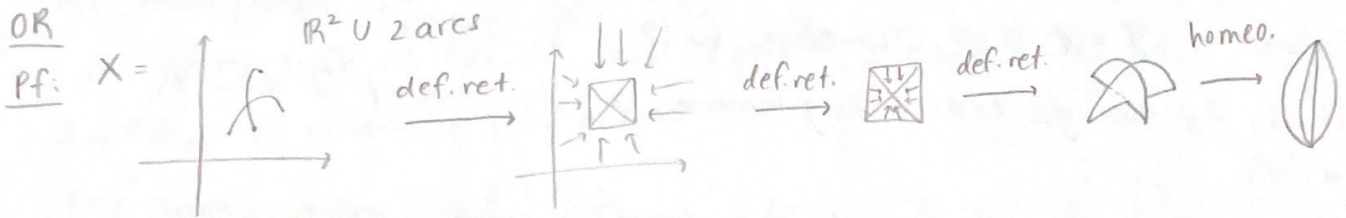 OR
Pf: X = ℝ² ∪ 2 arcs def. ret. def. ret. def. ret. homeo.